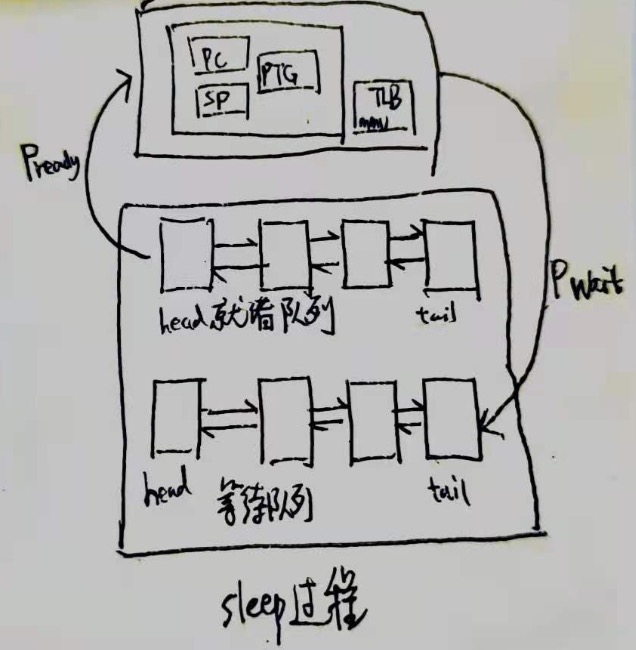 PC
PTG
SP
TLB
mmu
Pready
Pwait
head 就绪队列 tail
head 等待队列 tail
sleep过程